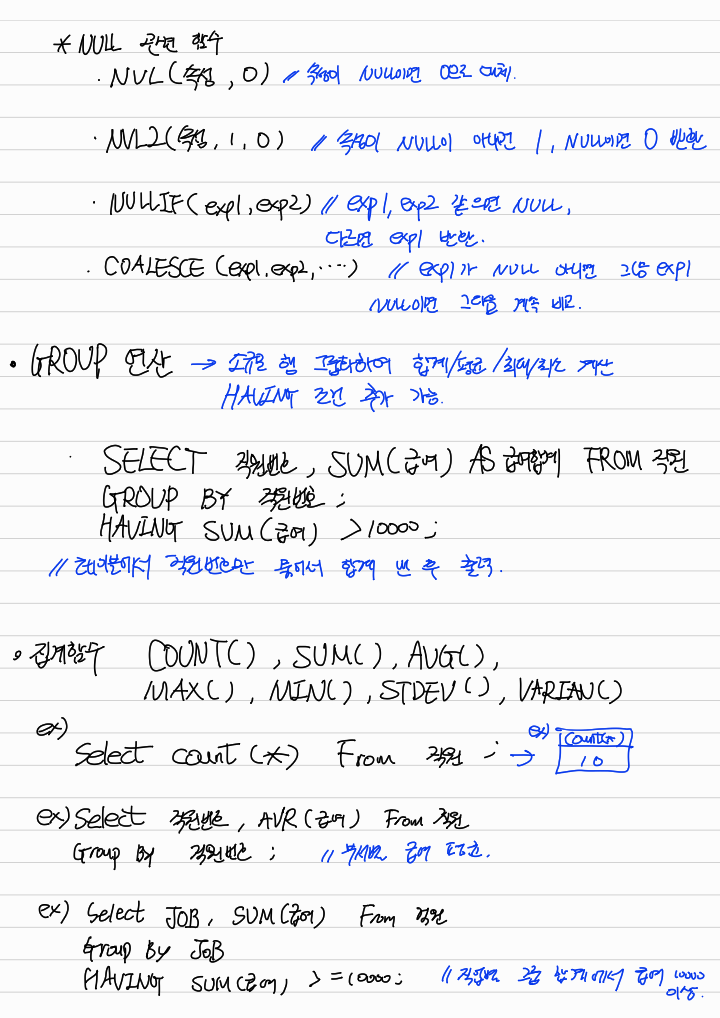 * NULL 관련 함수
· NVL(속성, 0) // 속성이 NULL이면 0으로 대체.
· NVL2(속성, 1, 0) // 속성이 NULL이 아니면 1, NULL이면 0 반환
· NULLIF(exp1, exp2) // exp1, exp2 같으면 NULL,
다르면 exp1 반환.
· COALESCE (exp1, exp2, ····) // exp1가 NULL 아니면 그냥 exp1
NULL이면 그다음 계속 비교.
• GROUP 연산 → 소규모 행 그룹화하여 합계/평균/최대/최소 계산
HAVING 조건 추가 가능.
· SELECT 직원번호, SUM(급여) AS 급여합계 FROM 직원
GROUP BY 직원번호;
HAVING SUM(급여) >10000;
// 테이블에서 직원번호만 묶어서 합계 낸 후 출력.
• 집계함수 COUNT(), SUM(), AVG(),
MAX(), MIN(), STDEV(), VARIAN()
ex)
Select count(*) From 직원 ; → ex) Count(*)
10
ex) Select 직원번호, AVR(급여) From 직원
Group By 직원번호 ; // 부서별 급여 평균.
ex) Select JOB, SUM(급여) From 직원
Group By JOB
HAVING SUM(급여) >=10000; // 직업별 그룹 합계에서 급여 10000
이상.